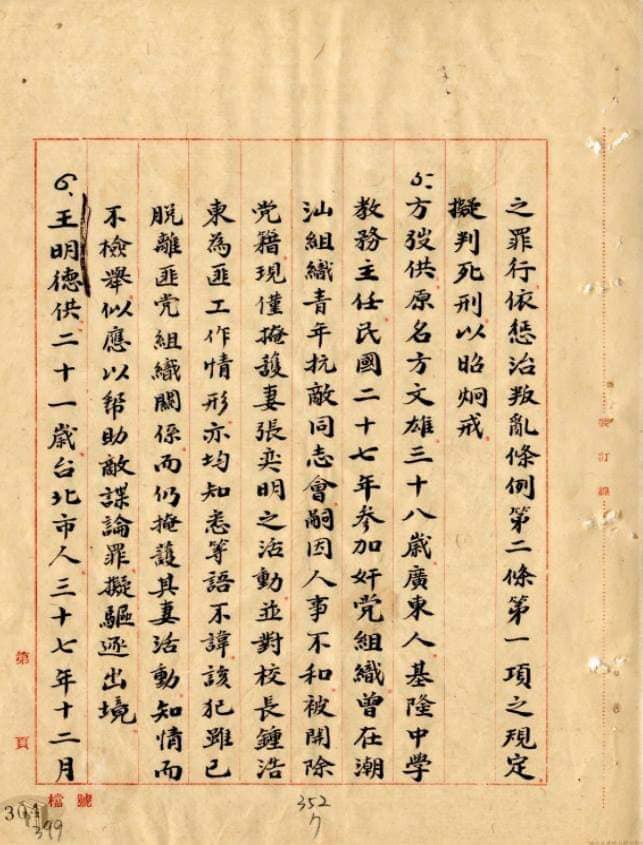 之罪行依懲治叛亂條例第二條第一項之規定
擬判死刑以昭炯戒
5、方弢供原名方文雄三十八歲廣東人基隆中學
教務主任民國二十七年參加奸党組織曾在潮
汕組織青年抗敵同志會嗣因人事不和被開除
党籍現僅掩護妻張奕明之活動並對校長鍾浩
東為匪工作情形亦均知悉等語不諱該犯雖已
脱離匪党組織關係而仍掩護其妻活動知情而
不檢舉似應以幫助敵諜論罪擬驅逐出境
6、王明德供二十一歲台北市人三十七年十二月
裝訂線
第 頁
檔號
304
399
352